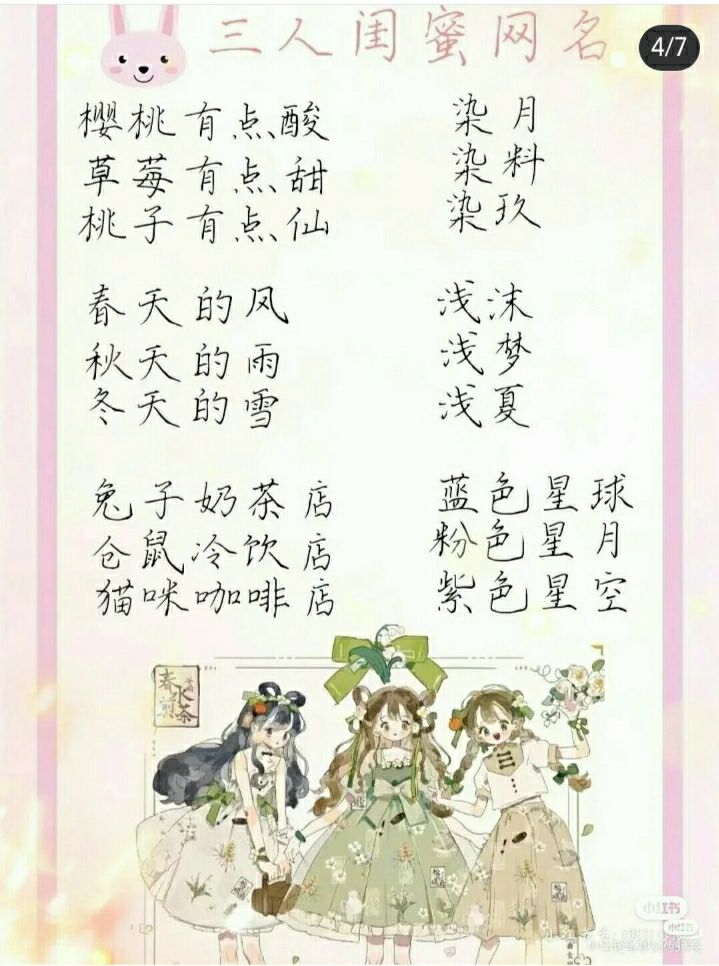 三人闺蜜网名
4/7
樱桃有点酸
草莓有点甜
桃子有点仙
染月
染料
染玖
春天的风
秋天的雨
冬天的雪
浅沫
浅梦
浅夏
兔子奶茶店
仓鼠冷饮店
猫咪咖啡店
蓝色星球
粉色星月
紫色星空
春水煎茶
小红书